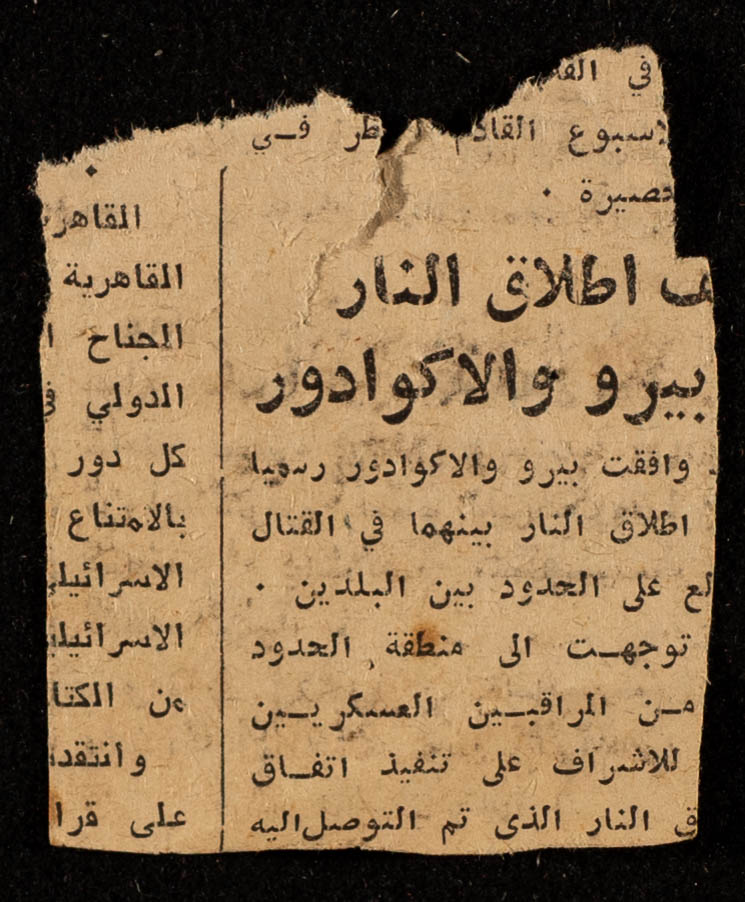 في
القادم في
اطلاق النار
بيرو والاكوادور
وافقت بيرو والاكوادور رسميا
اطلاق النار بينهما في القتال
لع على الحدود بين البلدين .
توجهـت الى منطقة الحدود
مـن المراقبـين العسكريـين
للاشراف على تنفيذ اتفـاق
ق النار الذى تم التوصل اليه
القاهر
القاهرية
الجناح
الدولي
كل دور
بالامتناع
الاسرائيلي
الاسرائيلي
من الكتا
وانتقد
على قرا